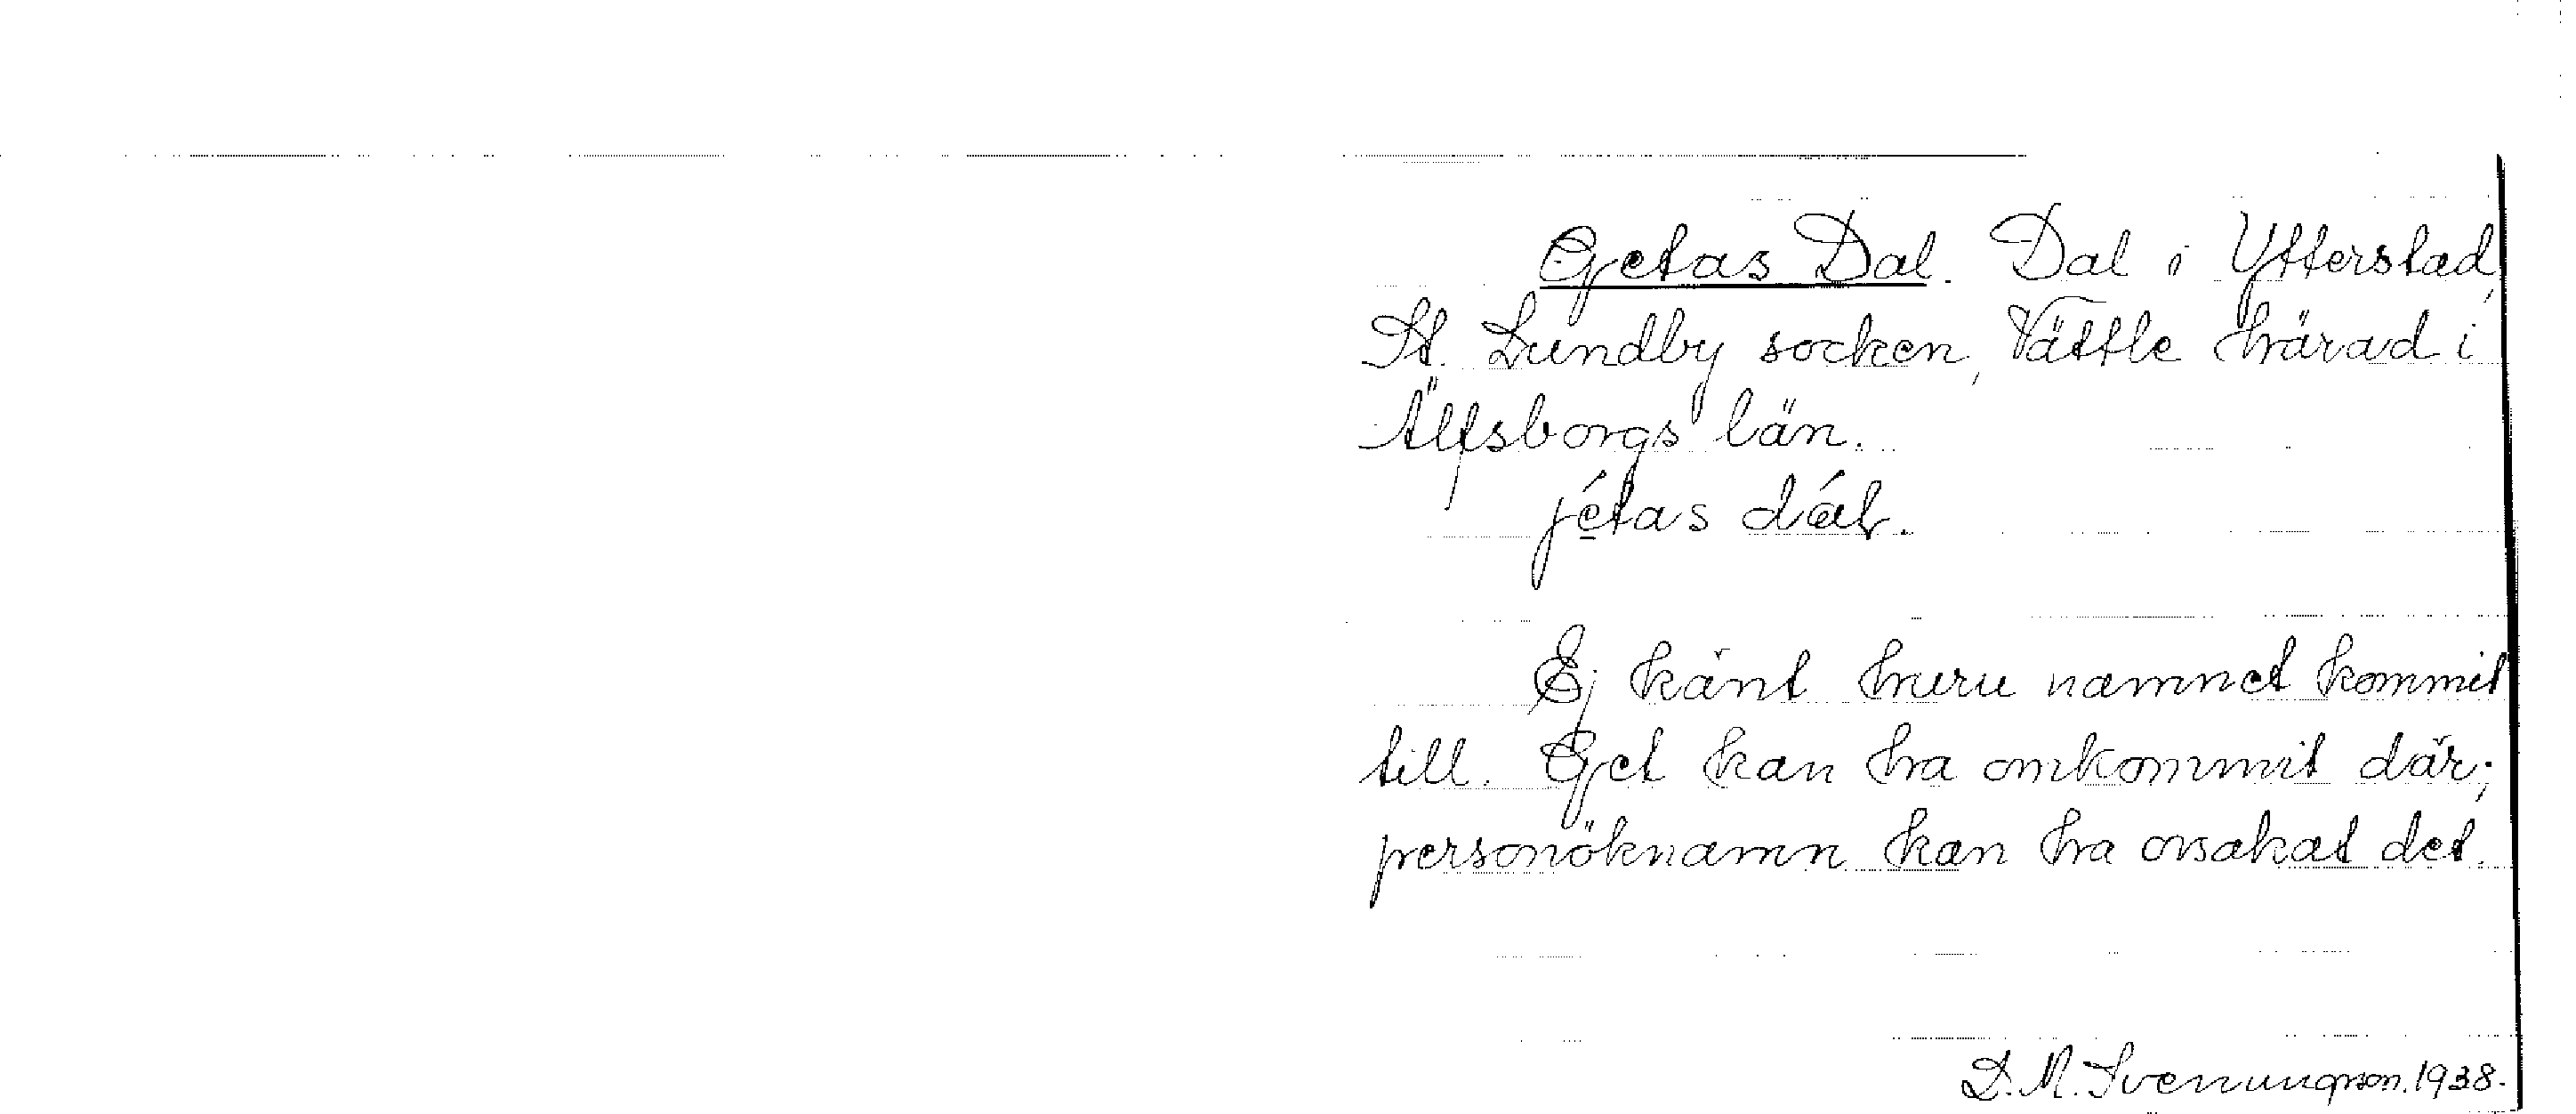 Getas Dal. Dal i Ytterstad,
St. Lundby socken, Vättle härad i
Älfsborgs län.
jétas dál.
Ej känt huru namnet kommit
till. Get kan ha omkommit där;
personöknamn kan ha orsakat det.
D. M. Svenungson. 1938.